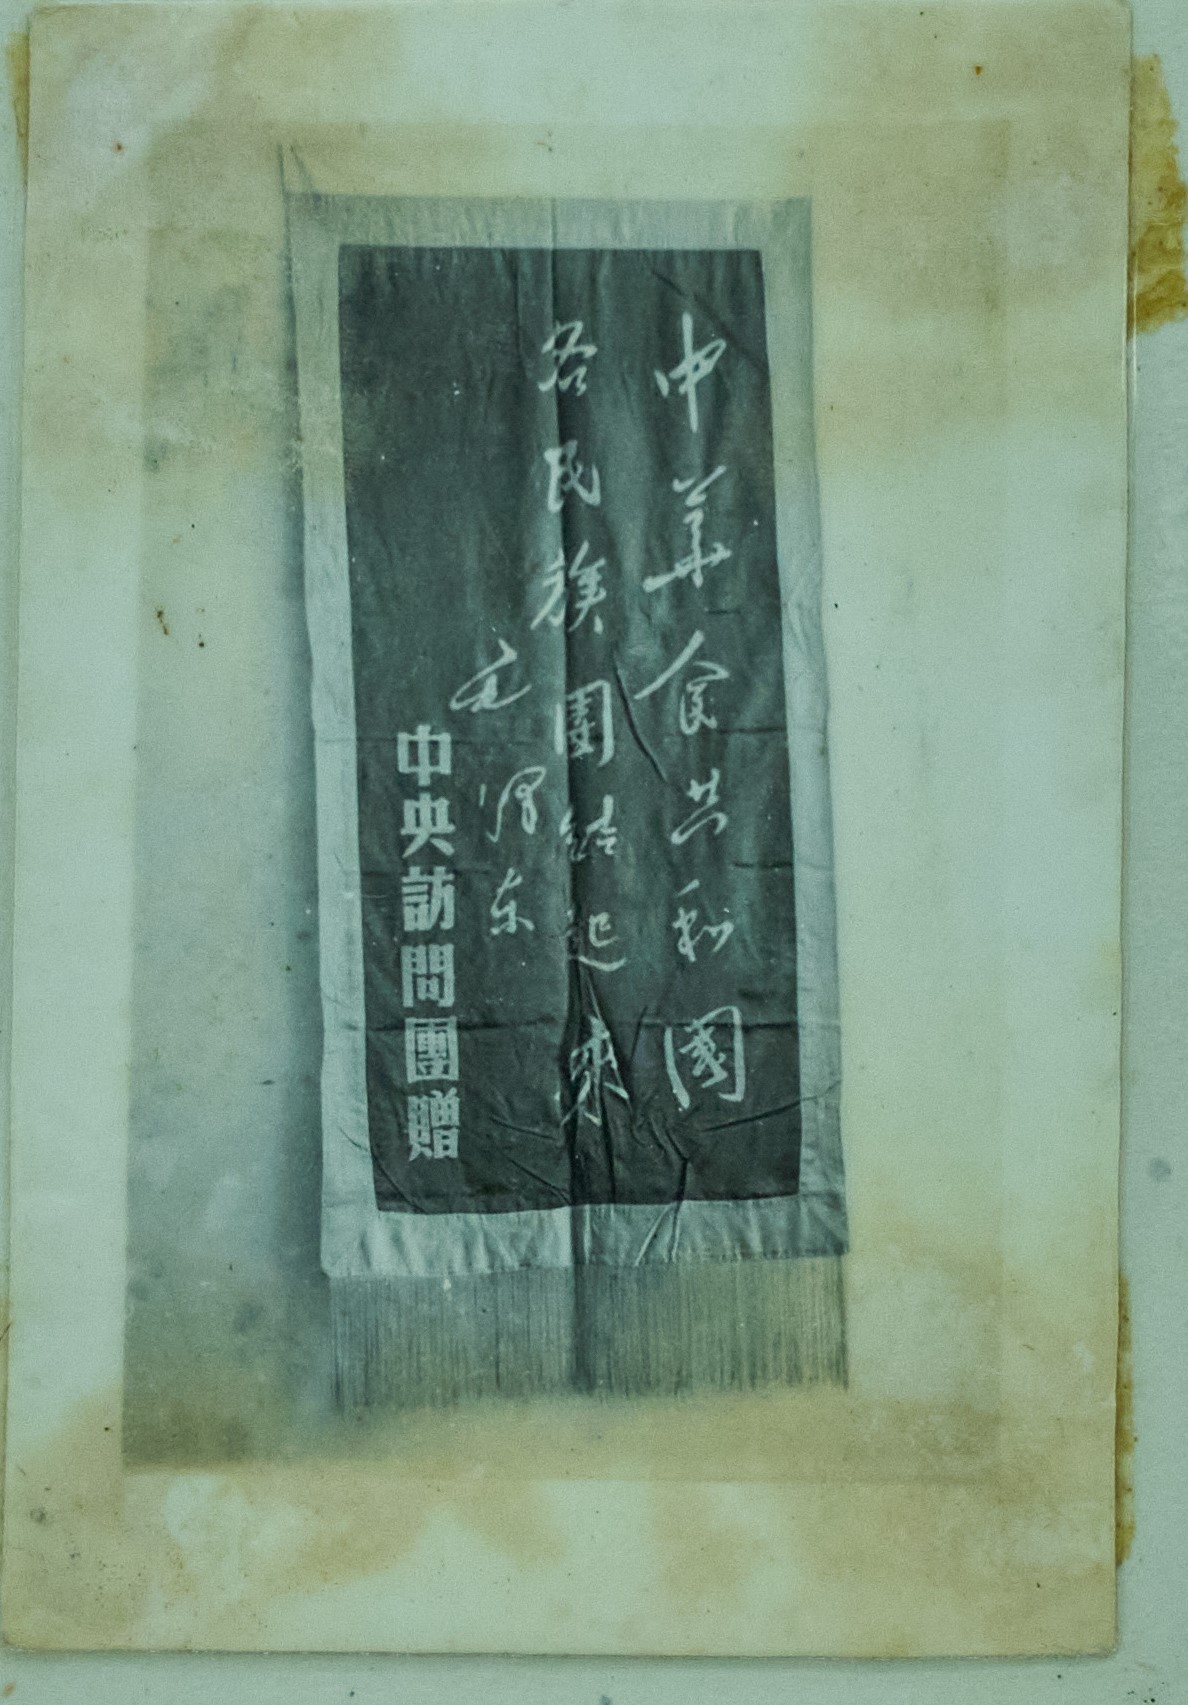 中華人民共和國
各民族團結起來
毛澤東
中央訪問團贈